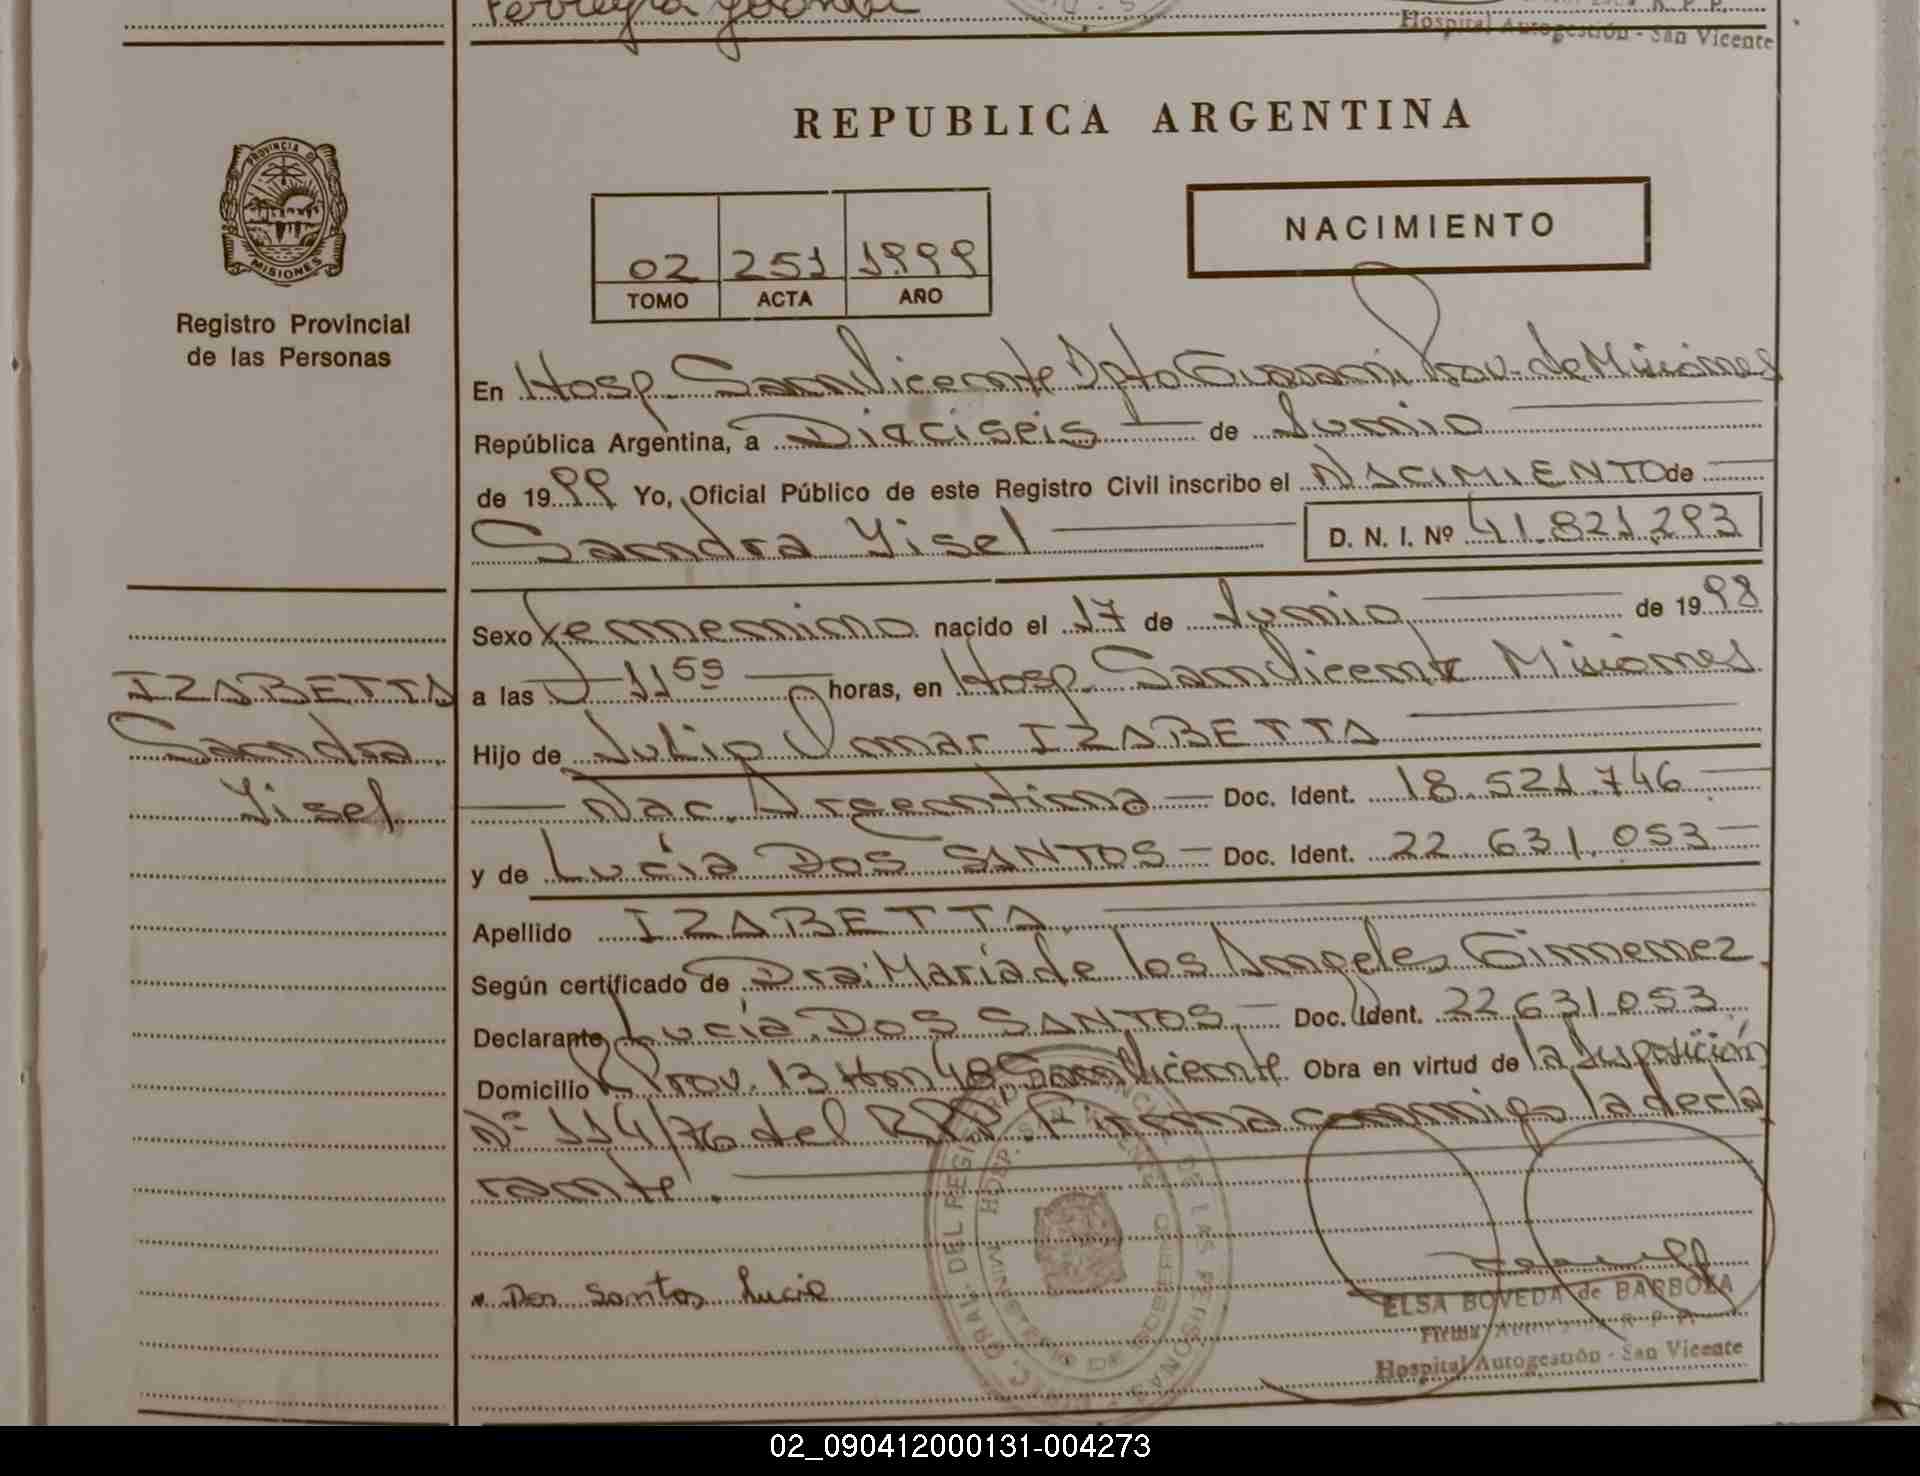 Hospital Autogestión - San Vicente
REPUBLICA ARGENTINA
PROVINCIA DE
MISIONES
Registro Provincial
de las Personas
NACIMIENTO
02 251 1999
TOMO ACTA AÑO
En Hosp. San Vicente Dpto Guarani Prov. de Misiones
República Argentina, a Diaciseis de Junio
de 1999 Yo, Oficial Público de este Registro Civil inscribo el NACIMIENTO de
Sandra Yisel D. N. I. Nº 41.821.293
Sexo Femenino nacido el 17 de Junio de 1998
a las 11 55 horas, en Hosp. San Vicente Misiones
Hijo de Julio Omar IZABETTA
Nac. Argentina Doc. Ident. 18.521.746
y de Lucía DOS SANTOS Doc. Ident. 22 631.053
Apellido IZABETTA
Según certificado de Dra: María de los Angeles Gimenez
Declarante Lucía DOS SANTOS Doc. Ident. 22.631.053
Domicilio R Prov. 13 Km 48 San Vicente Obra en virtud de la disposición
Nº 114/76 del RPP. Firma conmigo la decla
rante.
IZABETTA
Sandra
Yisel
Dos Santos Lucia
ELSA BOVEDA de BARBOZA
Hospital Autogestión - San Vicente
02_090412000131-004273